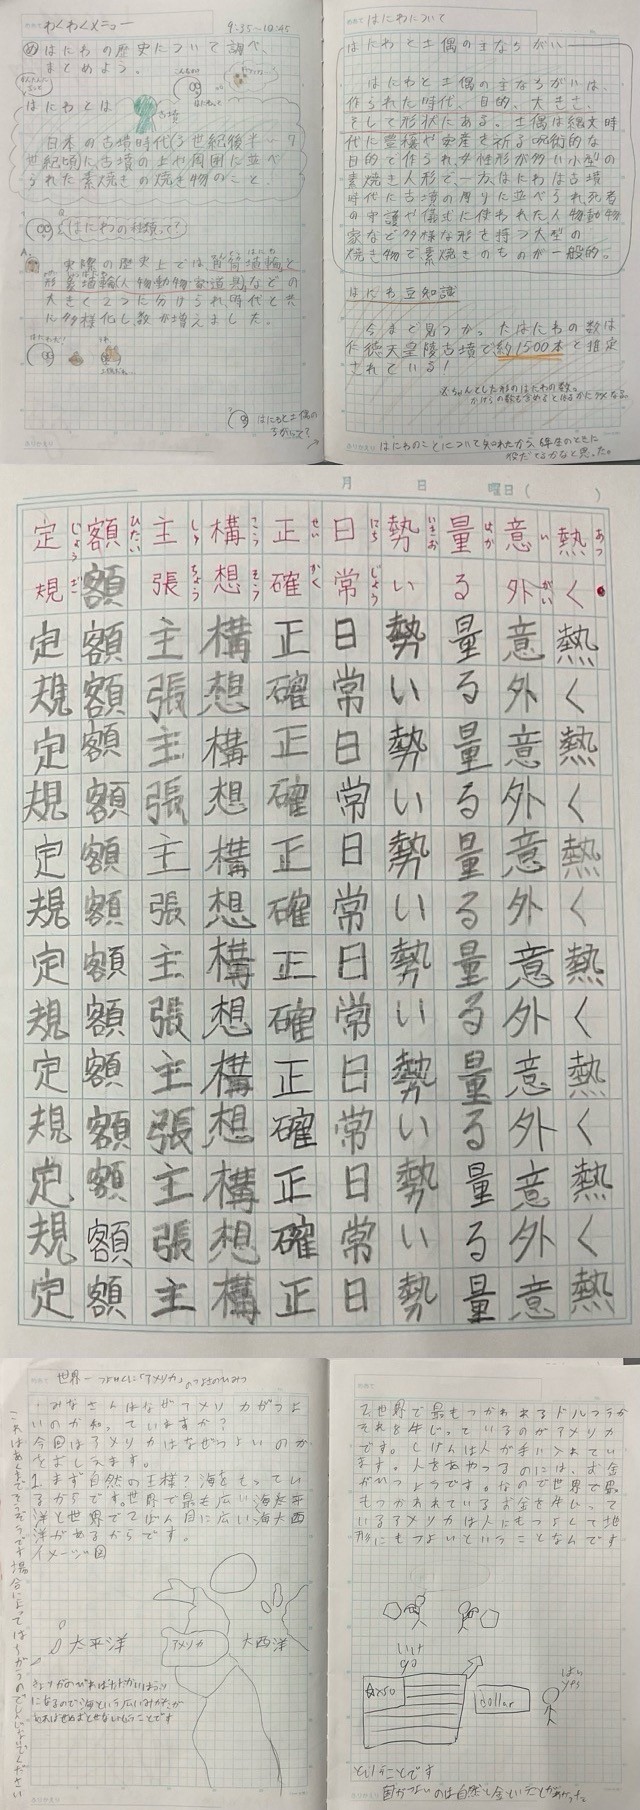 わくわくメニュー
9:35~10:45
め はにわの歴史について調べ、
まとめよう。
はにわとは
古墳
日本の古墳時代(3世紀後半~7
世紀頃)に古墳の上や周囲に並べ
られた素焼きの焼き物のこと。
はにわの種類って?
実際の歴史上では円筒埴輪と
形象埴輪(人物動物家道具)などの
大きく2つに分けられ時代と共
に多様化し数が増えました。
はにわと土偶の
ちがいって?
はにわについて
はにわと土偶の主なちがい
はにわと土偶の主なちがいは、
作られた時代、目的、大きさ、
そして形状にある。土偶は縄文時
代に豊穣や安産を祈る呪術的な
目的で作られ、女性形が多い小型の
素焼き人形で、一方、はにわは古墳
時代に古墳の周りに並べられ、死者
の守護や儀式に使われた人物動物
家など多様な形を持つ大型の
焼き物で素焼きのものが一般的。
はにわ豆知識
今まで見つかったはにわの数は
仁徳天皇陵古墳で約1500本と推定
されている!
※ちゃんとした形のはにわの数。
はにわのことについて知れたから6年生のときに
役だてるかなと思った。
月 日 曜日( )
熱く 意外 量る 勢い 日常 正確 構想 主張 額 定規
あつ い がい はか いきお にち じょう せい かく こう そう しゅ ちょう ひたい じょう ぎ
定 額 主 構 正 日 勢 量 意 熱
規 額 張 想 確 常 い る 外 く
定 額 主 構 正 日 勢 量 意 熱
規 額 張 想 確 常 い る 外 く
定 額 主 構 正 日 勢 量 意 熱
規 額 張 想 確 常 い る 外 く
定 額 主 構 正 日 勢 量 意 熱
規 額 張 想 確 常 い る 外 く
定 額 主 構 正 日 勢 量 意 熱
規 額 張 想 確 常 い る 外 く
定 額 主 構 正 日 勢 量 意 熱
規 額 張 想 確 常 い る 外 く
定 額 主 構 正 日 勢 量 意 熱
世界一つよいくに「アメリカ」のつよさのひみつ
みなさんはなぜアメリカがつよ
いのか知っていますか?
今回はアメリカはなぜつよいのか
をおしえます。
1.まず自然の王様?海をもってい
るからです。世界で最も広い海太平
洋と世界で2ばん目に広い海大西
洋があるからです。
イメージ図
太平洋
アメリカ
大西洋
2.世界で最もつかわれるドル
それを牛じっているのがアメリカ
です。しげんは人が手に入れてい
ます。人をあやつるのには、お金
がひつようです。なので世界で最
もつかわれているお金を牛じって
いるアメリカは人にもつよくて地
形にもつよいということなんです
いけ
go
dollar
はい
yes
ということです